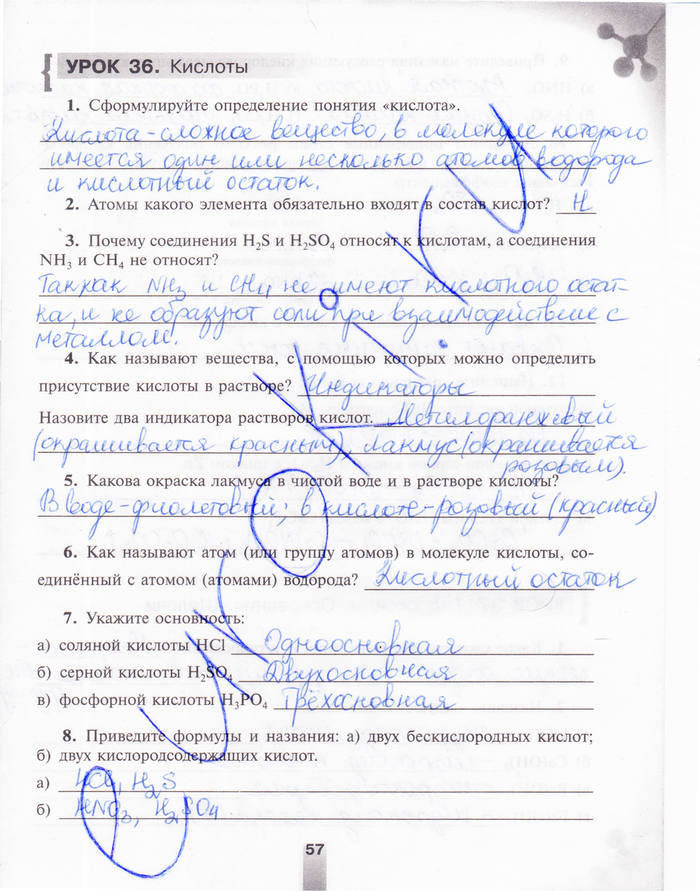 УРОК 36. Кислоты
1. Сформулируйте определение понятия «кислота».
Кислота-сложное вещество, в молекуле которого
имеется один или несколько атомов водорода
и кислотный остаток.
2. Атомы какого элемента обязательно входят в состав кислот? H
3. Почему соединения H₂S и H₂SO₄ относят к кислотам, а соединения
NH₃ и CH₄ не относят?
Так как NH₃ и CH₄ не имеют кислотного остат-
ка, и не образуют соли при взаимодействие с
металлом.
4. Как называют вещества, с помощью которых можно определить
присутствие кислоты в растворе? Индикаторы
Назовите два индикатора растворов кислот. Метилоранжевый
(окрашивается красным), лакмус (окрашивается
розовым).
5. Какова окраска лакмуса в чистой воде и в растворе кислоты?
В воде-фиолетовый; в кислоте-розовый (красный)
6. Как называют атом (или группу атомов) в молекуле кислоты, со-
единённый с атомом (атомами) водорода? Кислотный остаток
7. Укажите основность:
а) соляной кислоты HCl Одноосновная
б) серной кислоты H₂SO₄ Двухосновная
в) фосфорной кислоты H₃PO₄ Трёхосновная
8. Приведите формулы и названия: а) двух бескислородных кислот;
б) двух кислородсодержащих кислот.
а) HCl, H₂S
б) HNO₃, H₂SO₄
57
UROKI.RU